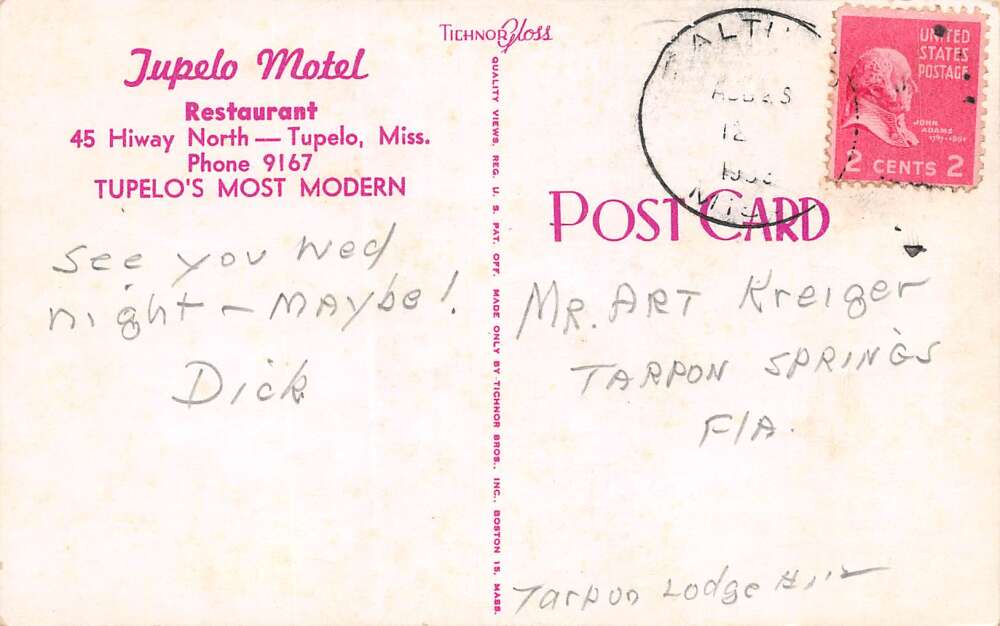 TICHNOR Gloss
Tupelo Motel
Restaurant
45 Hiway North — Tupelo, Miss.
Phone 9167
TUPELO'S MOST MODERN
See you Wed
night - MAYbe!
Dick
QUALITY VIEWS, REG. U. S. PAT. OFF. MADE ONLY BY TICHNOR BROS., INC., BOSTON 15, MASS.
UNITED
STATES
POSTAGE
JOHN
ADAMS
1797-1801
2 CENTS 2
POST CARD
MR. ART Kreiger
TARPON SPRINGS
FlA.
Tarpon Lodge